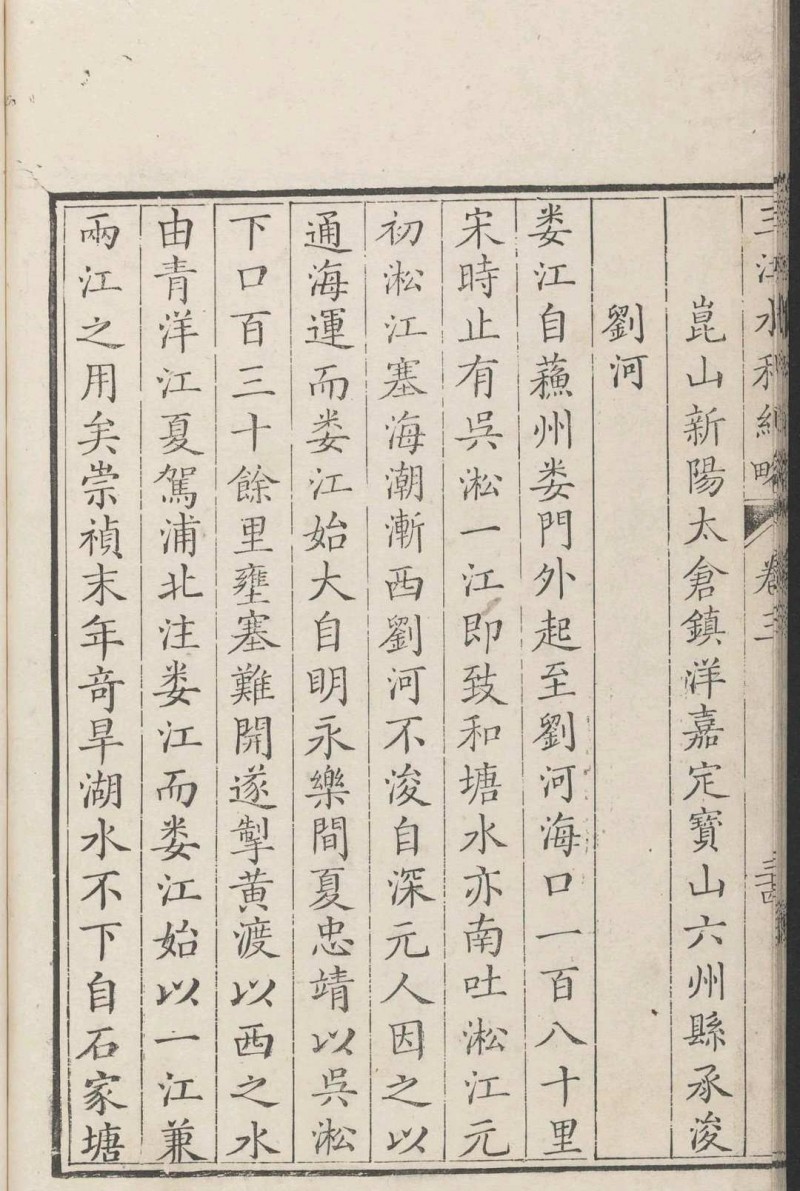 三江水利紀略 卷三 三十四
崑山新陽太倉鎮洋嘉定寶山六州縣承浚
劉河
娄江自蘓州娄門外起至劉河海口一百八十里
宋時止有吳淞一江即致和塘水亦南吐淞江元
初淞江塞海潮漸西劉河不浚自深元人因之以
通海運而娄江始大自明永樂間夏忠靖以吳淞
下口百三十餘里壅塞難開遂掣黄渡以西之水
由青洋江夏駕浦北注娄江而娄江始以一江兼
兩江之用矣崇禎末年竒旱湖水不下自石家塘